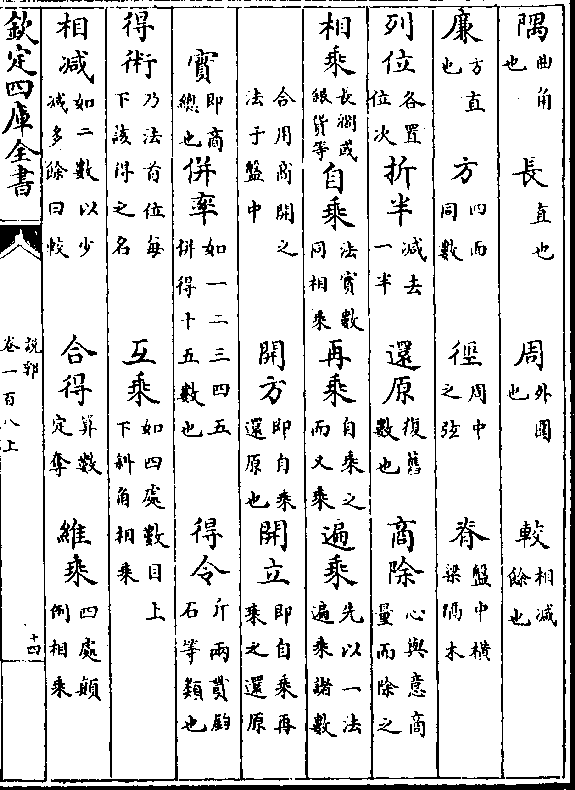 隅曲角也　長直也　周外圍也　較相減餘也
廉方直也　方四面同數　徑周中之弦　脊盤中橫梁隔木
列位各置位次　折半減去一半　還原復舊數也　商除心與意商量而除之
相乘長濶或銀貨等　自乘法實數同相乘　再乘自乘之而又乘　遍乘先以一法遍乘諸數
合用商開之法于盤中　開方即自乘還原也　開立即自乘再乘之還原
實即商總也　併率如一二三四五併得十五數也　得令斤兩貫鈞石等類也
得術乃法首位每下該得之名　互乘如四處數目上下斜角相乘
相減如二數以少減多餘曰較　合得算數定奪　維乘四處顛倒相乘
欽定四庫全書
說郛
卷一百八上
十四